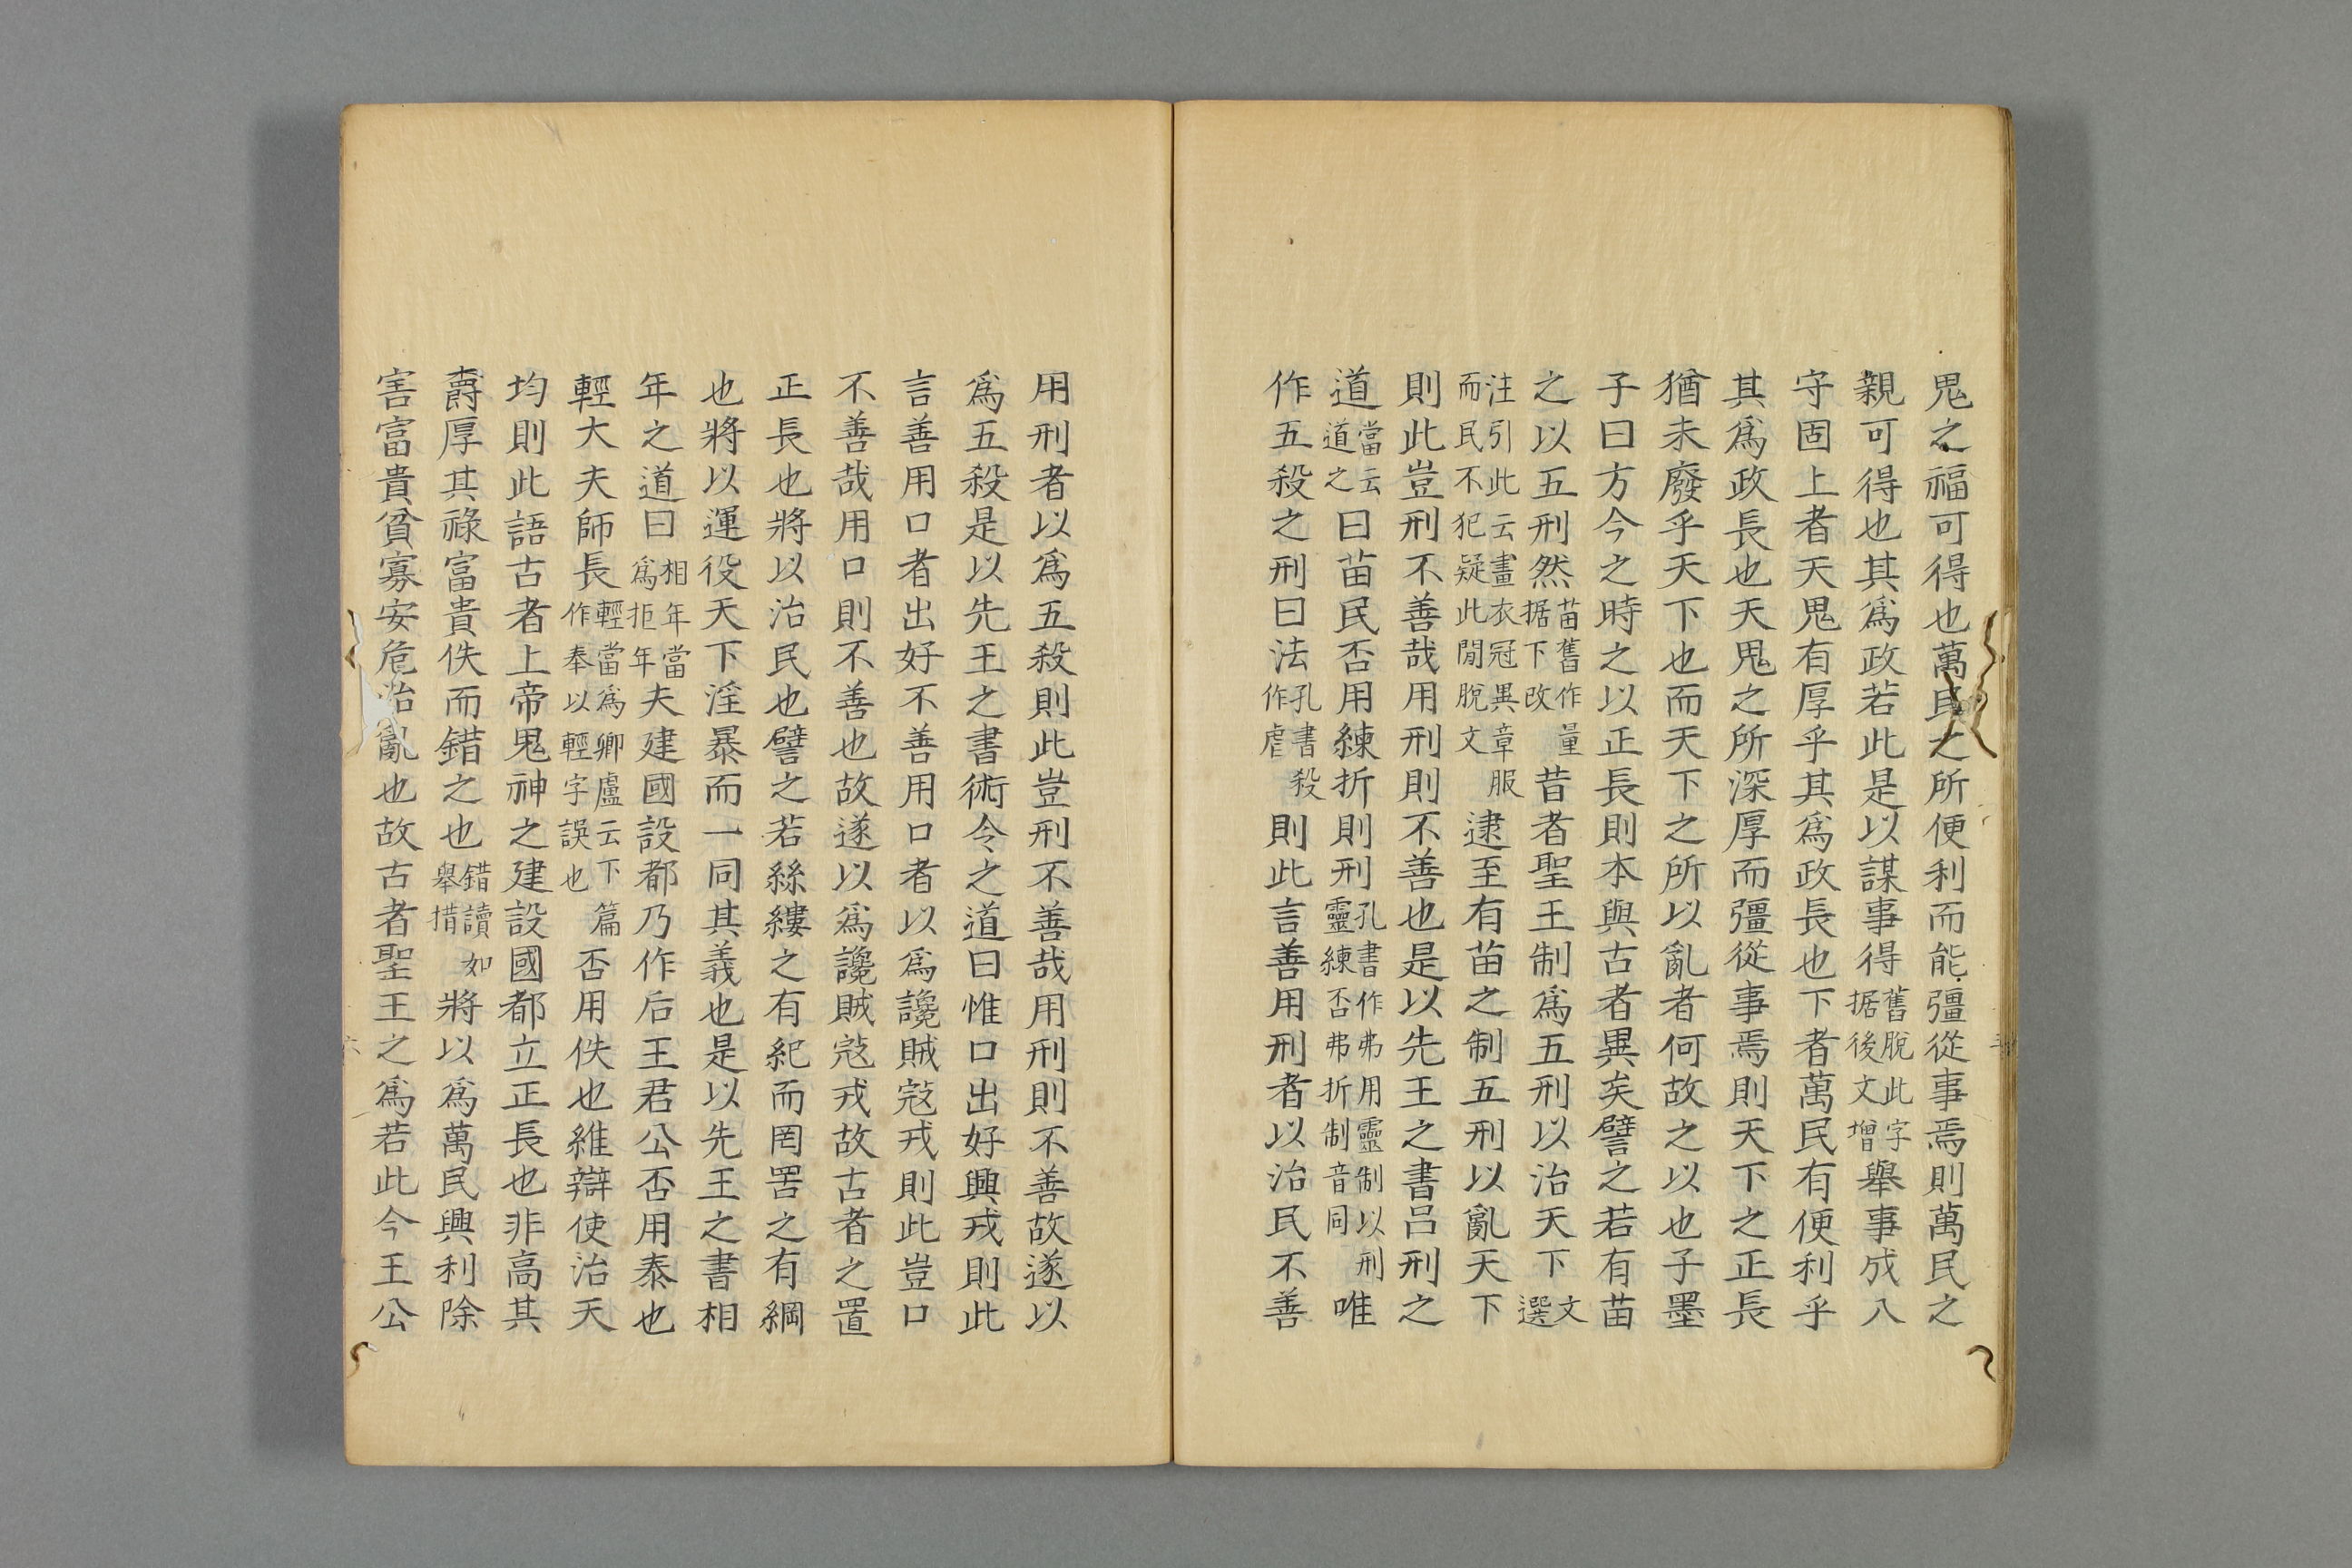 鬼之福可得也萬民之所便利而能彊從事焉則萬民之
親可得也其爲政若此是以謀事得舊脫此字据後文增舉事成入
守固上者天鬼有厚乎其爲政長也下者萬民有便利乎
其爲政長也天鬼之所深厚而彊從事焉則天下之正長
猶未廢乎天下也而天下之所以亂者何故之以也子墨
子曰方今之時之以正長則本與古者異矣譬之若有苗
之以五刑然苗舊作量据下改昔者聖王制爲五刑以治天下文選
注引此云畫衣冠異章服而民不犯疑此閒脫文逮至有苗之制五刑以亂天下
則此豈刑不善哉用刑則不善也是以先王之書呂刑之
道當云道之曰苗民否用練折則刑孔書作弗用靈制以刑靈練否弗折制音同唯
作五殺之刑曰法孔書殺作虐則此言善用刑者以治民不善
用刑者以爲五殺則此豈刑不善哉用刑則不善故遂以
爲五殺是以先王之書術令之道曰惟口出好興戎則此
言善用口者出好不善用口者以爲讒賊寇戎則此豈口
不善哉用口則不善也故遂以爲讒賊寇戎故古者之置
正長也將以治民也譬之若絲縷之有紀而罔罟之有綱
也將以運役天下淫暴而一同其義也是以先王之書相
年之道曰相年當爲拒年夫建國設都乃作后王君公否用泰也
輕大夫師長輕當爲卿盧云下篇作奉以輕字誤也否用佚也維辯使治天
均則此語古者上帝鬼神之建設國都立正長也非高其
爵厚其祿富貴佚而錯之也錯讀如舉措將以爲萬民興利除
害富貴貧寡安危治亂也故古者聖王之爲若此今王公